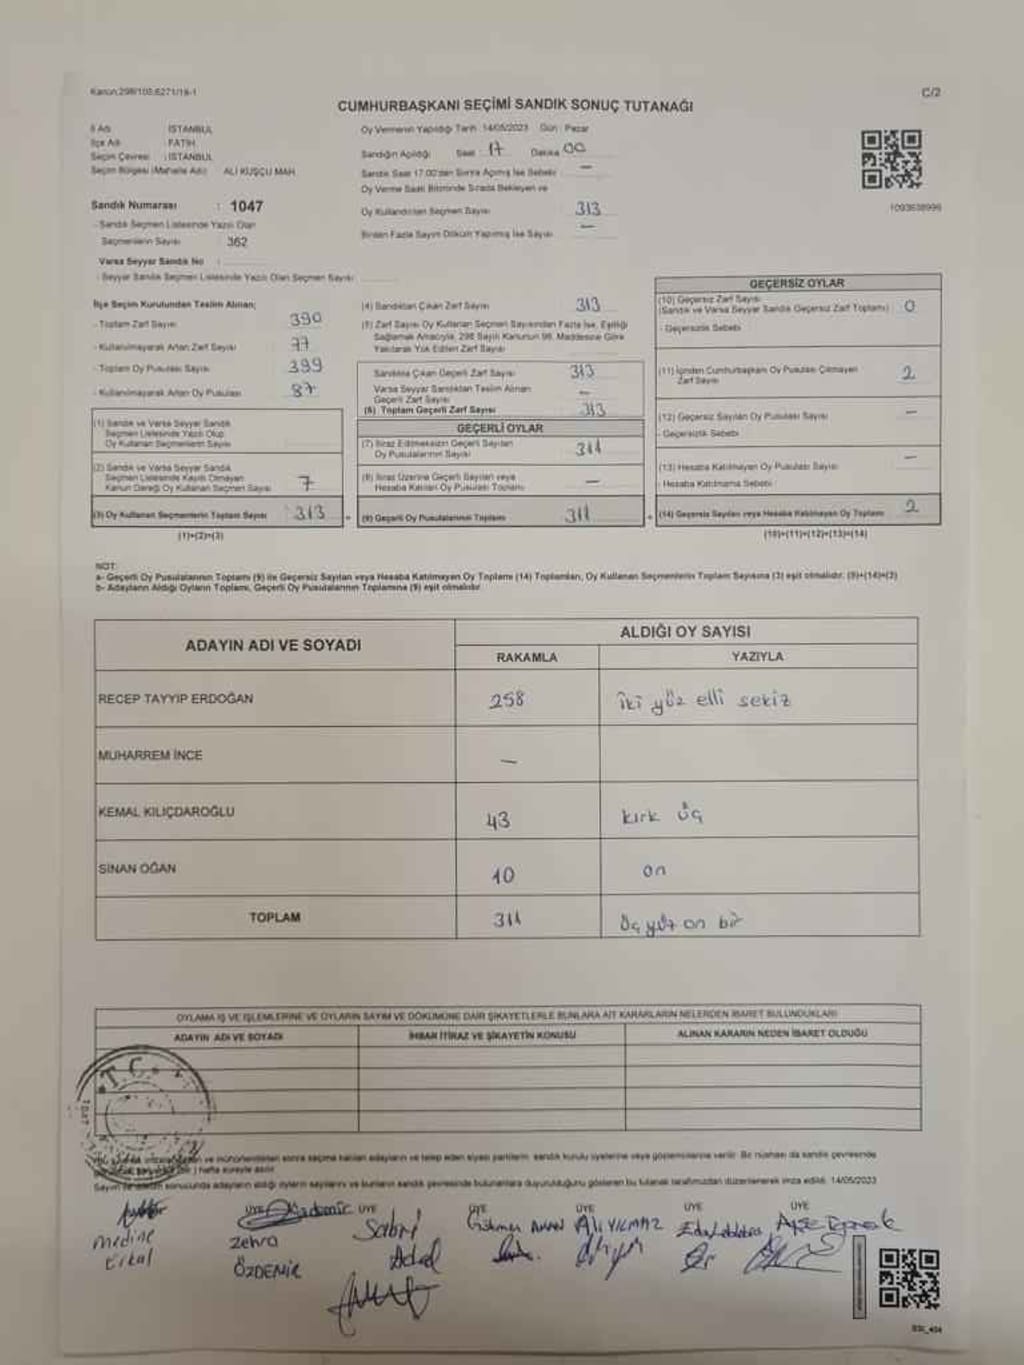 Kanun:298/105,6271/19-1
C/2
CUMHURBAŞKANI SEÇİMİ SANDIK SONUÇ TUTANAĞI
İl Adı : İSTANBUL
İlçe Adı : FATİH
Seçim Çevresi : İSTANBUL
Seçim Bölgesi (Mahalle Adı) : ALİ KUŞÇU MAH.
Oy Vermenin Yapıldığı Tarih :14/05/2023 Gün : Pazar
Sandığın Açıldığı Saat 17 Dakika 00
Sandık Saat 17.00'den Sonra Açılmış İse Sebebi —
Oy Verme Saati Bitiminde Sırada Bekleyen ve
Oy Kullandırılan Seçmen Sayısı 313
Birden Fazla Sayım Döküm Yapılmış İse Sayısı —
1093638996
Sandık Numarası : 1047
- Sandık Seçmen Listesinde Yazılı Olan
Seçmenlerin Sayısı : 362
Varsa Seyyar Sandık No :
- Seyyar Sandık Seçmen Listesinde Yazılı Olan Seçmen Sayısı
İlçe Seçim Kurulundan Teslim Alınan;
- Toplam Zarf Sayısı 390
- Kullanılmayarak Artan Zarf Sayısı 77
- Toplam Oy Pusulası Sayısı 399
- Kullanılmayarak Artan Oy Pusulası 87
(1) Sandık ve Varsa Seyyar Sandık
Seçmen Listesinde Yazılı Olup
Oy Kullanan Seçmenlerin Sayısı
(2) Sandık ve Varsa Seyyar Sandık
Seçmen Listesinde Kayıtlı Olmayan
Kanun Gereği Oy Kullanan Seçmen Sayısı 7
(3) Oy Kullanan Seçmenlerin Toplam Sayısı 313
(1)+(2)=(3)
(4) Sandıktan Çıkan Zarf Sayısı 313
(5) Zarf Sayısı Oy Kullanan Seçmen Sayısından Fazla İse, Eşitliği
Sağlamak Amacıyla, 298 Sayılı Kanunun 98. Maddesine Göre
Yakılarak Yok Edilen Zarf Sayısı
Sandıkta Çıkan Geçerli Zarf Sayısı 313
Varsa Seyyar Sandıktan Teslim Alınan
Geçerli Zarf Sayısı —
(6) Toplam Geçerli Zarf Sayısı 313
GEÇERLİ OYLAR
(7) İtiraz Edilmeksizin Geçerli Sayılan
Oy Pusulalarının Sayısı 311
(8) İtiraz Üzerine Geçerli Sayılan veya
Hesaba Katılan Oy Pusulası Toplamı —
(9) Geçerli Oy Pusulalarının Toplamı 311
GEÇERSİZ OYLAR
(10) Geçersiz Zarf Sayısı
(Sandık ve Varsa Seyyar Sandık Geçersiz Zarf Toplamı) 0
- Geçersizlik Sebebi
(11) İçinden Cumhurbaşkanı Oy Pusulası Çıkmayan
Zarf Sayısı 2
(12) Geçersiz Sayılan Oy Pusulası Sayısı —
- Geçersizlik Sebebi
(13) Hesaba Katılmayan Oy Pusulası Sayısı —
- Hesaba Katılmama Sebebi
(14) Geçersiz Sayılan veya Hesaba Katılmayan Oy Toplamı 2
(10)+(11)+(12)+(13)=(14)
NOT:
a- Geçerli Oy Pusulalarının Toplamı (9) ile Geçersiz Sayılan veya Hesaba Katılmayan Oy Toplamı (14) Toplamları, Oy Kullanan Seçmenlerin Toplam Sayısına (3) eşit olmalıdır. (9)+(14)=(3)
b- Adayların Aldığı Oyların Toplamı, Geçerli Oy Pusulalarının Toplamına (9) eşit olmalıdır.
ADAYIN ADI VE SOYADI
ALDIĞI OY SAYISI
RAKAMLA YAZIYLA
RECEP TAYYİP ERDOĞAN 258 iki yüz elli sekiz
MUHARREM İNCE —
KEMAL KILIÇDAROĞLU 43 kırk üç
SİNAN OĞAN 10 on
TOPLAM 311 üç yüz on bir
OYLAMA İŞ VE İŞLEMLERİNE VE OYLARIN SAYIM VE DÖKÜMÜNE DAİR ŞİKAYETLERLE BUNLARA AİT KARARLARIN NELERDEN İBARET BULUNDUKLARI
ADAYIN ADI VE SOYADI İHBAR İTİRAZ VE ŞİKAYETİN KONUSU ALINAN KARARIN NEDEN İBARET OLDUĞU
T.C.
1047
ve mühürlendikten sonra seçime katılan adayların ve talep eden siyasi partilerin sandık kurulu üyelerine veya gözlemcilerine verilir. Bir nüshası da sandık çevresinde
hafta süreyle asılır.
sonucunda adayların aldığı oyların sayılarını ve bunların sandık çevresinde bulunanlara duyurulduğunu gösteren bu tutanak tarafımızdan düzenlenerek imza edildi. 14/05/2023
ÜYE ÜYE ÜYE ÜYE ÜYE ÜYE
Medine Erkal
Zehra ÖZDEMİR
Sabri
Gökmen
ALİ YILMAZ
Eda
Ayşe